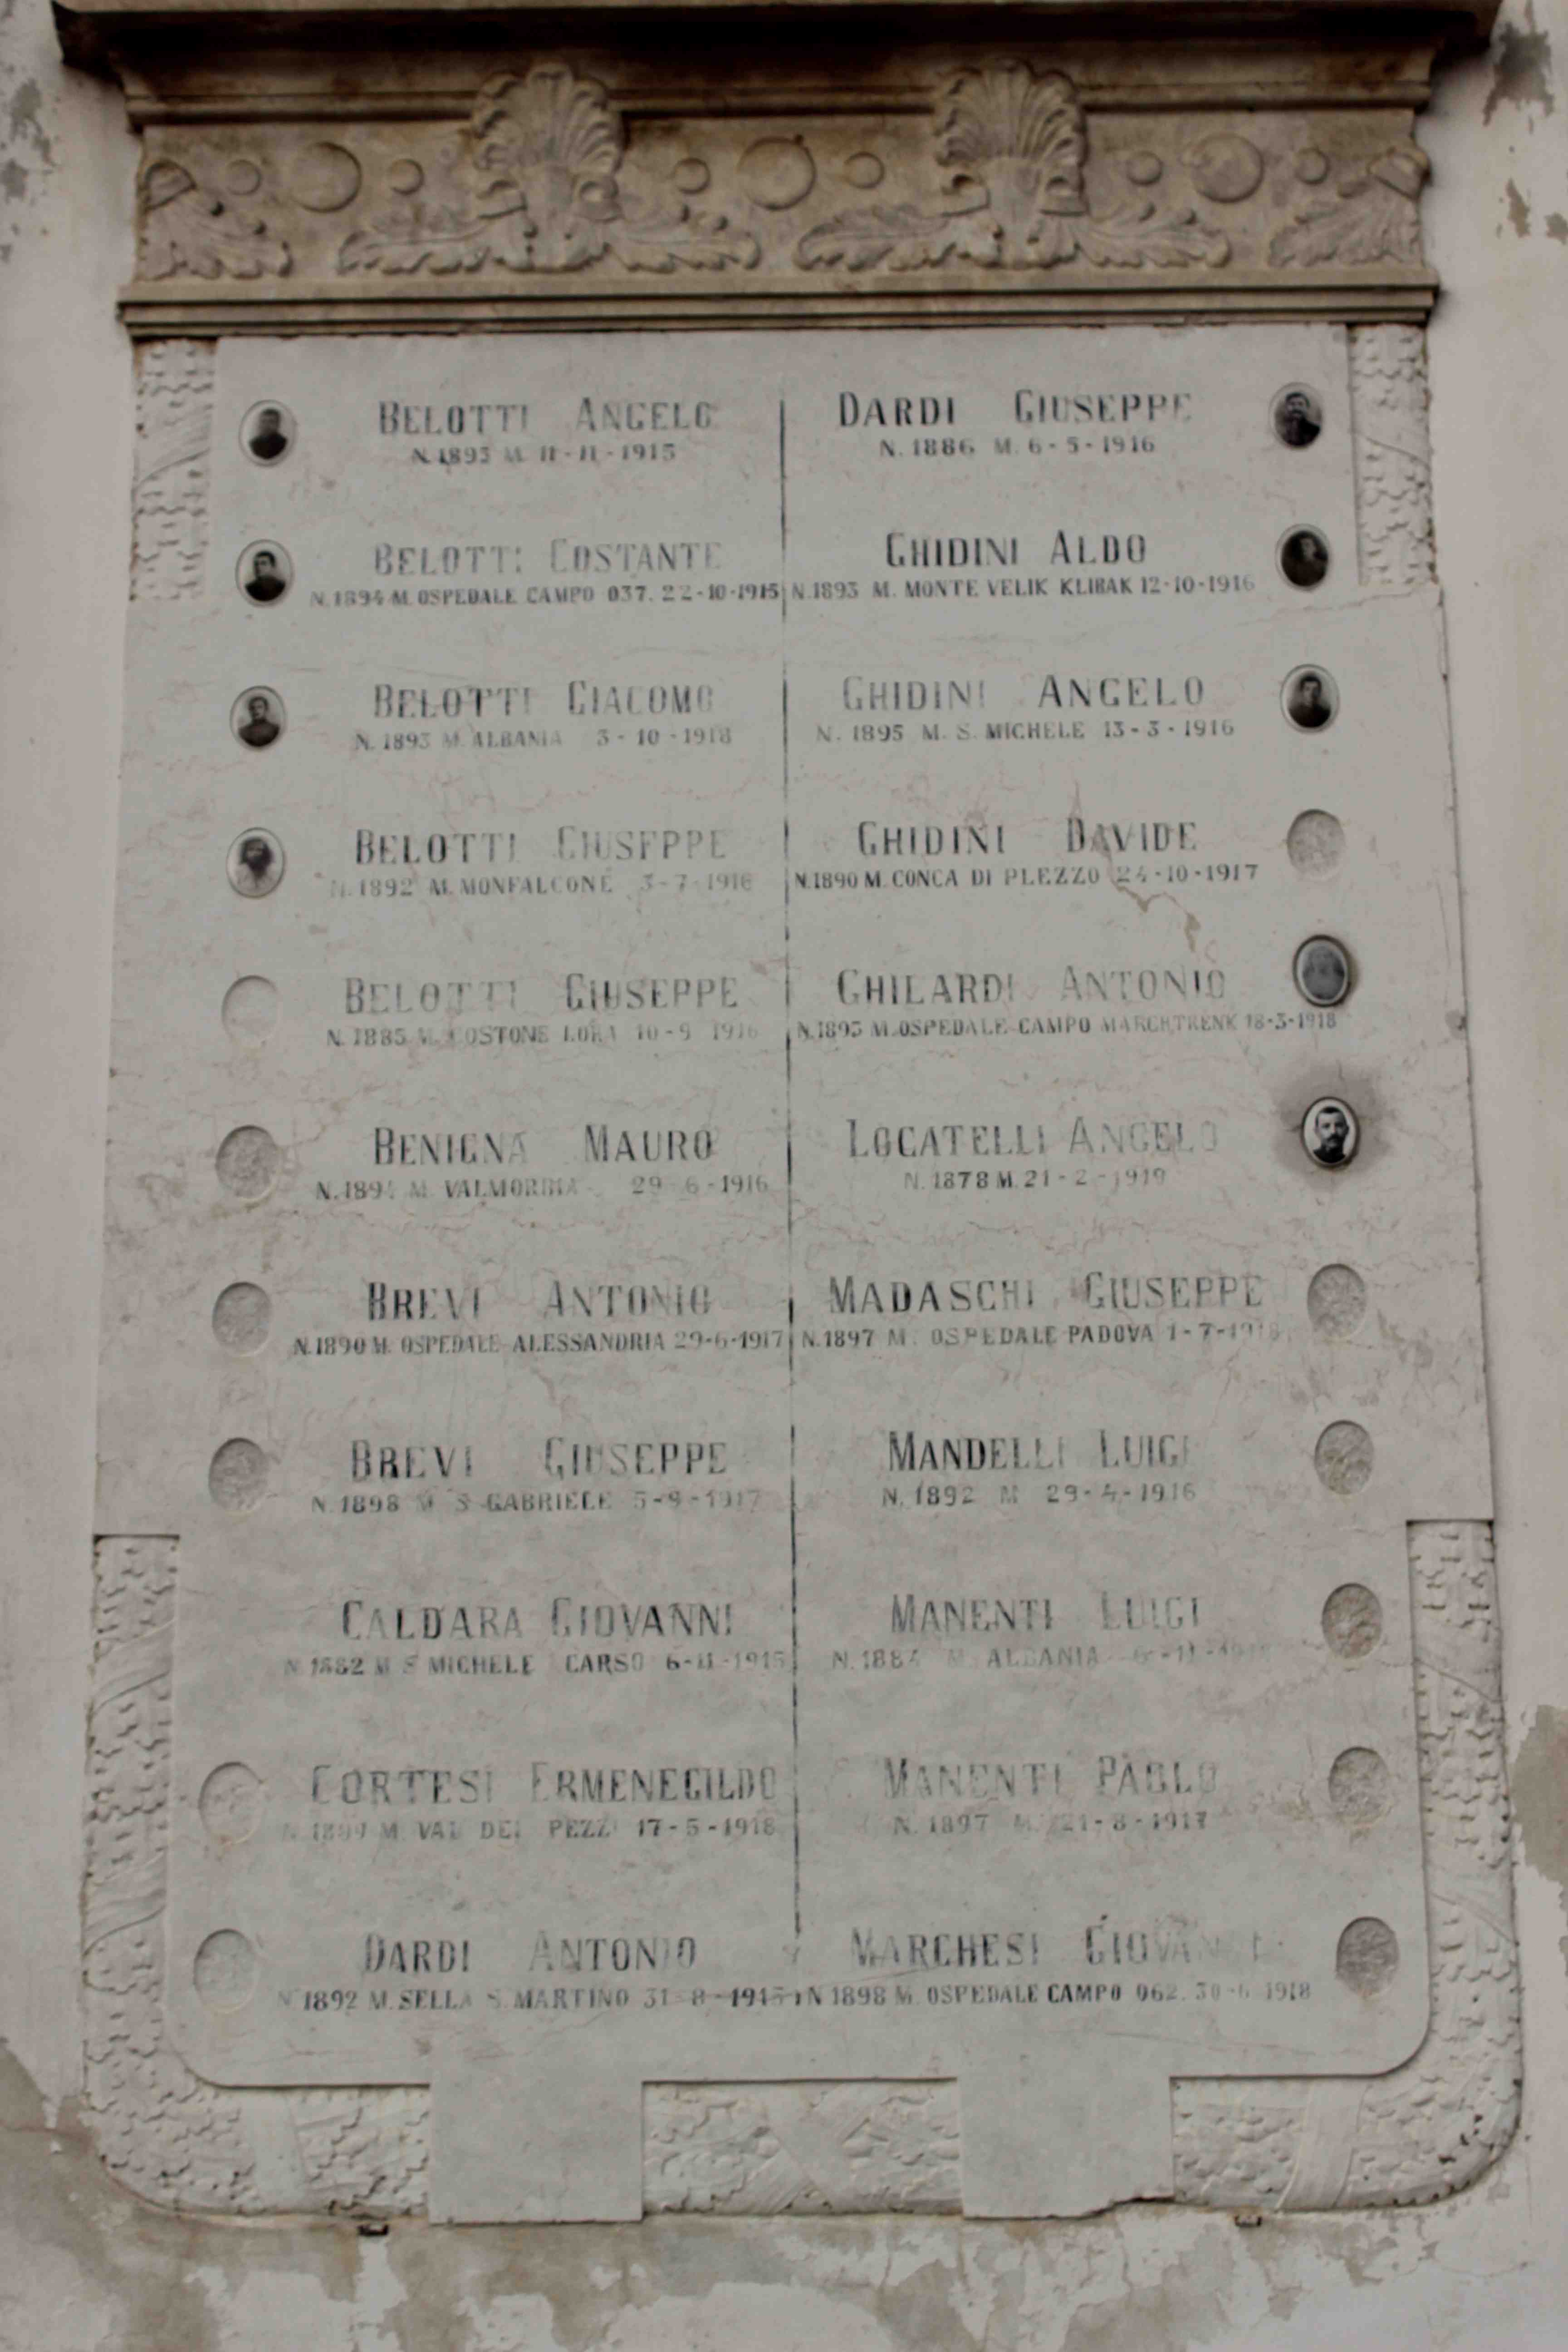 BELOTTI ANGELO
N. 1893 M. 11-11-1915
BELOTTI COSTANTE
N. 1894 M. OSPEDALE CAMPO 037. 22-10-1915
BELOTTI GIACOMO
N. 1893 M. ALBANIA 3-10-1918
BELOTTI GIUSEPPE
N. 1892 M. MONFALCONE 3-7-1916
BELOTTI GIUSEPPE
N. 1885 M. COSTONE LORA 10-9 1916
BENIGNA MAURO
M. VALMORBIA 29-6-1916
BREVI ANTONIO
N. 1890 M. OSPEDALE ALESSANDRIA 29-6-1917
BREVI GIUSEPPE
N. 1898 M S GABRIELE 5-9-1917
CALDARA GIOVANNI
N 1882 M S MICHELE CARSO 6-11-1915
CORTESI ERMENEGILDO
N. 1899 M. VAL DEI PEZZI 17-5-1918
DARDI ANTONIO
N 1892 M. SELLA S. MARTINO 31-8-1915
DARDI GIUSEPPE
N. 1886 M. 6-5-1916
GHIDINI ALDO
N. 1893 M. MONTE VELIK KLIBAK 12-10-1916
GHIDINI ANGELO
N. 1895 M. S. MICHELE 13-3-1916
GHIDINI DAVIDE
N. 1890 M. CONCA DI PLEZZO 24-10-1917
GHILARDI ANTONIO
N. 1893 M. OSPEDALE CAMPO MARCHTRENK 18-3-1918
LOCATELLI ANGELO
N. 1878 M. 21-2-1919
MADASCHI GIUSEPPE
N. 1897 M. OSPEDALE PADOVA 1-7-1918
MANDELLI LUIGI
N. 1892 M 29-4-1916
MANENTI LUIGI
N. 1884 M ALBANIA
MANENTI PAOLO
N. 1897 M. 21-8-1917
MARCHESI GIOVANNI
N 1898 M. OSPEDALE CAMPO 062. 30-6 1918